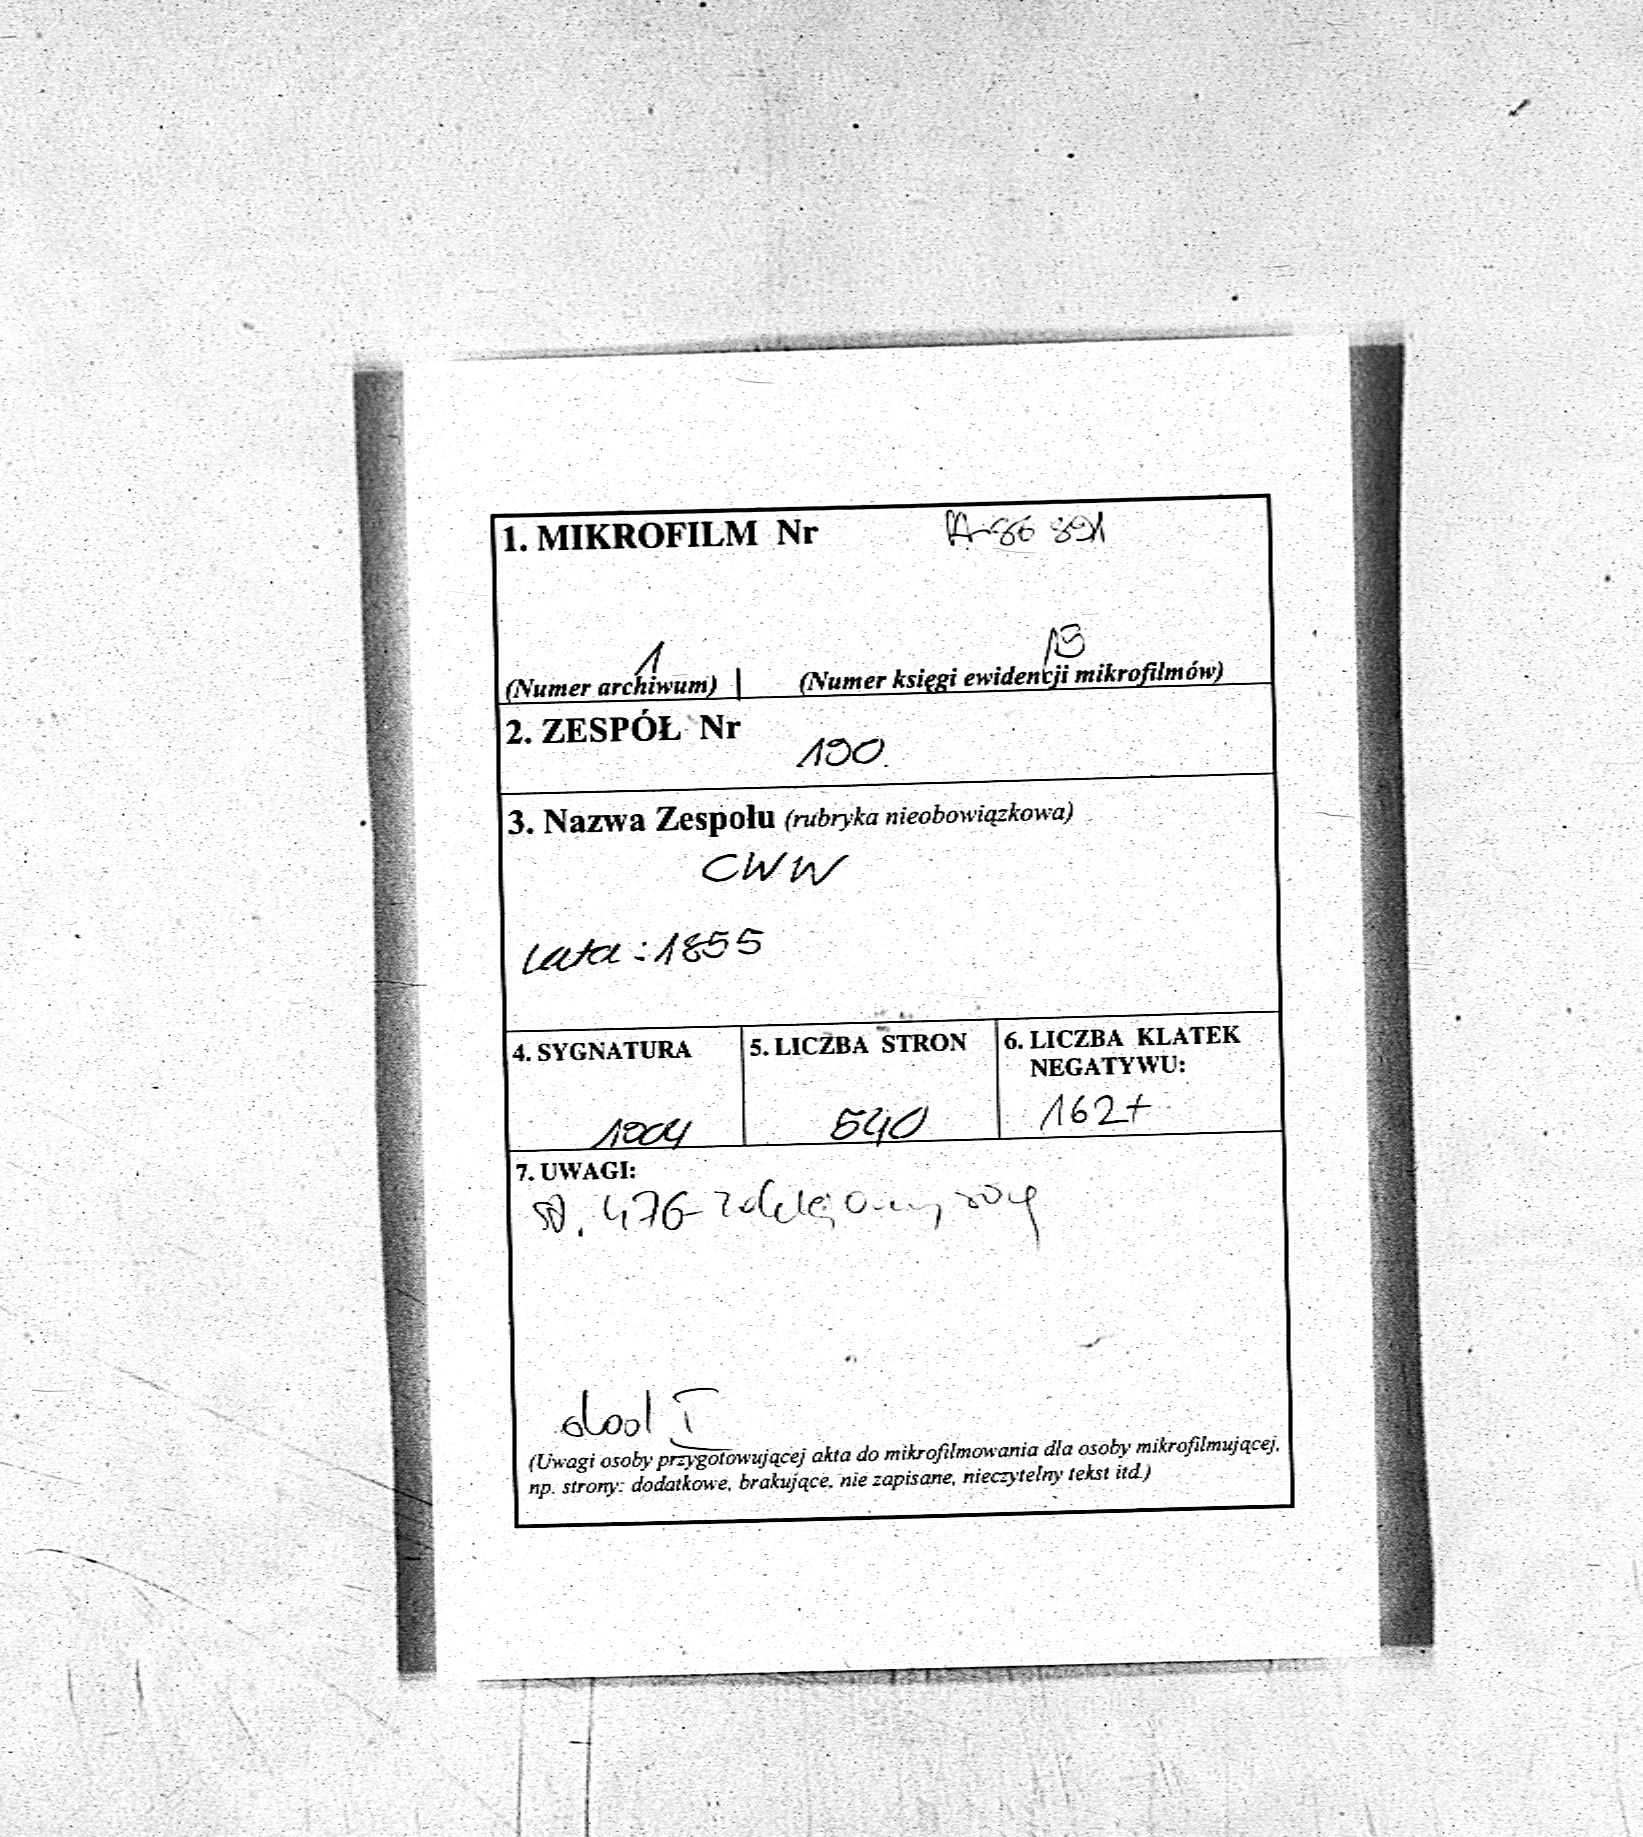 1. MIKROFILM Nr A-86 891
1 13
(Numer archiwum) (Numer księgi ewidencji mikrofilmów)
2. ZESPÓŁ Nr
190.
3. Nazwa Zespołu (rubryka nieobowiązkowa)
CWW
Lata: 1855
4. SYGNATURA 5. LICZBA STRON 6. LICZBA KLATEK
NEGATYWU:
1904 540 162+
7. UWAGI:
476
dod I
(Uwagi osoby przygotowującej akta do mikrofilmowania dla osoby mikrofilmującej,
np. strony: dodatkowe, brakujące, nie zapisane, nieczytelny tekst itd.)